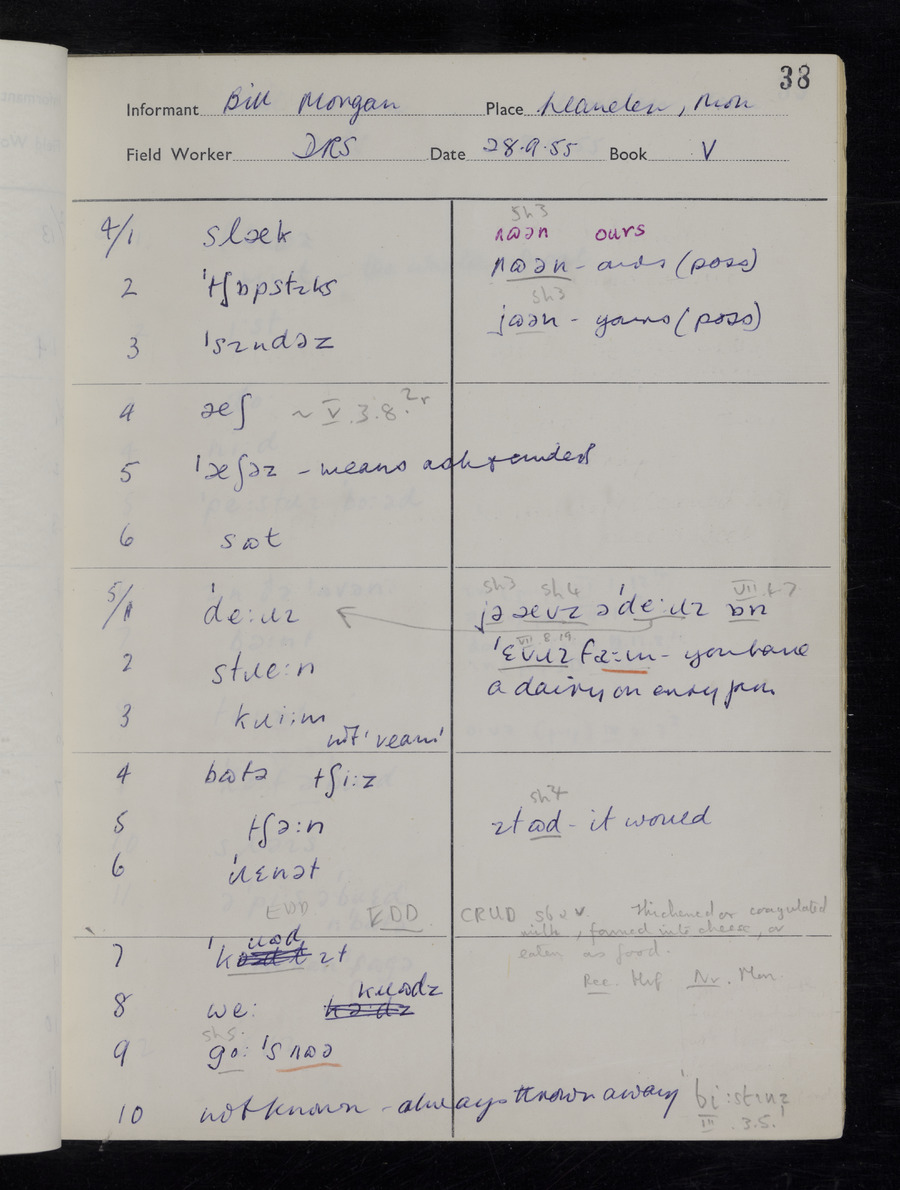 38
Informant Bill Morgan Place Llanellen, Mon
Field Worker DRS Date 28.9.55 Book V
4/1 slæk
sh3
ɒʊən ours
2 ˈtʃɒpstɪks
ɒʊən - ours (poss)
sh3
3 ˈsɪndəz
jʊən - yours (poss)
4 æʃ ~ V.3.8.
5 ˈæʃəz - means ash + cinders
6 sʊt
5/1 ˈdeːɹɪ
sh3 sh4 VII.
jə ævɪ əˈdeːɹɪ ɒn
VII.8.19.
2 stɹeːn
ˈɛvɹɪ fæːm - you have
a dairy on every farm
3 kɹiːm
not 'ream'
4 bʊtə tʃiːz
sh4
5 tʃəːn
ɪt ʊd - it would
6 ˈɹɛnət
EDD EDD CRUD sb u v. Thickened or coagulated
milk, formed into cheese, or
eaten as food.
Rec. Hrf Nr. Mon.
7 ˈkɹʊd ɪt
8 weː kɹʊdz
sh5.
9 goː ˈsɒʊə
10 not known - always thrown away biːstɪnz
III.3.5.